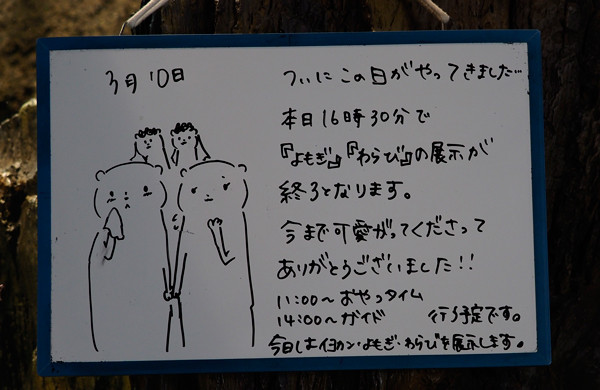 3月10日
ついにこの日がやってきました…
本日16時30分で
『よもぎ』『わらび』の展示が
終了となります。
今まで可愛がってくださって
ありがとうございました!!
11:00〜おやつタイム
14:00〜ガイド 行う予定です。
今日はイヨカン・よもぎ・わらびを展示します。